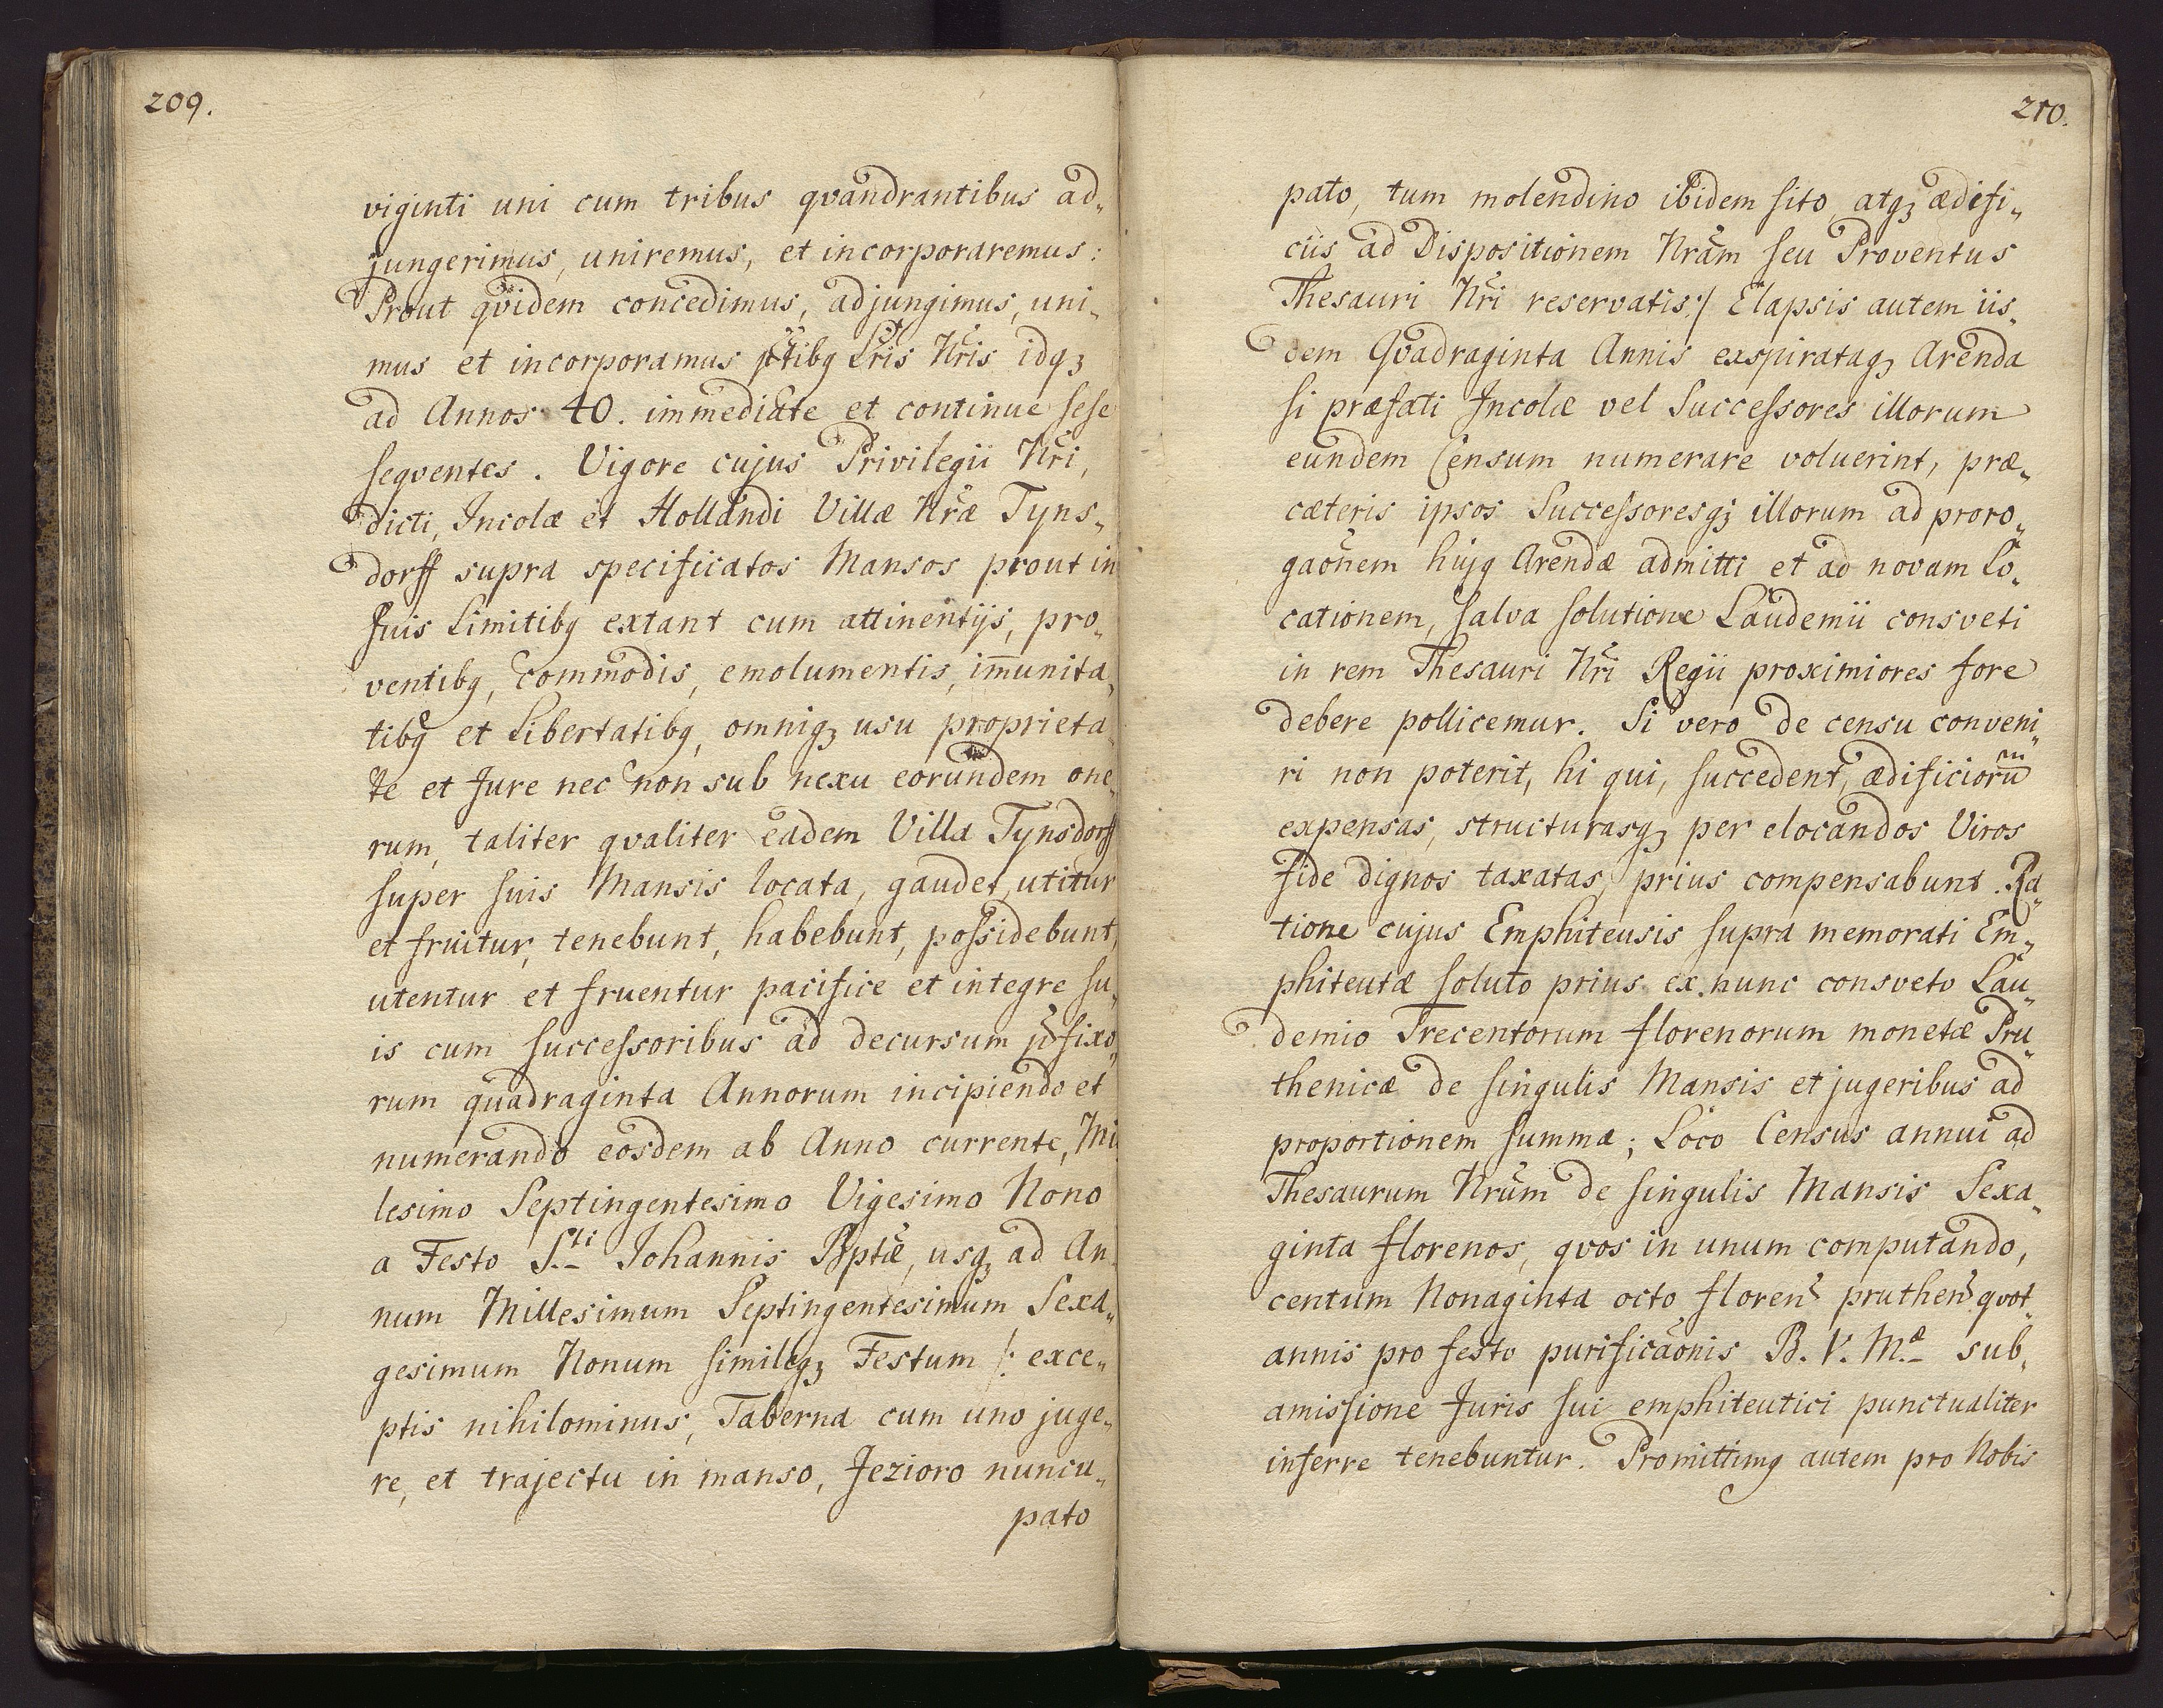 209.
viginti uni cum tribus qvandrantibus ad„
jungerimus, uniremus, et incorporaremus:
Prout qvidem concedimus, adjungimus, uni„
mus et incorporamus pñtibꝯ Lris Nris idqꝫ
ad Annos 40. immediate et continue sese
seqventes. Vigore cujus Privilegii Nri,
dicti, Incolæ et Hollandi Villæ Nræ Tyns„
dorff supra specificatos Mansos prout in
suis Limitibꝯ extant cum attinentijs, pro„
ventibꝯ, commodis, emolumentis, im̄unita„
tibꝯ et Libertatibꝯ, omniqꝫ usu proprieta„
te et Jure nec non sub nexu eorundem one„
rum, taliter qvaliter eadem Villa Tynsdorff
super suis Mansis locata, gaudet, utitur
et fruitur, tenebunt, habebunt, possidebunt,
utentur et fruentur pacifice et integre su„
is cum successoribus ad decursum p̃fixo„
rum quadraginta Annorum incipiendo et
numerando eosdem ab Anno currente, Mi„
lesimo Septingentesimo Vigesimo Nono
a Festo S.ti Johannis Bptæ, usqꝫ ad An„
num Millesimum Septingentesimum Sexa„
gesimum Nonum simileqꝫ Festum /: exce„
ptis nihilominus, Taberna cum uno juge„
re, et trajectu in manso, Jezioro nuncu„
pato
210.
pato, tum molendino ibidem sito, atqꝫ ædifi„
ciis ad Dispositionem Nram seu Proventus
Thesauri Nri reservatis:/ Elapsis autem iis„
dem Qvadraginta Annis exspirataqꝫ Arenda
si præfati Incolæ vel Successores illorum
eundem Censum numerare voluerint, præ„
cæteris ipsos Successoresqꝫ illorum ad proro„
gaõnem hujꝯ Arendæ admitti et ad novam Lo„
cationem, salva solutione Laudemii consveti
in rem Thesauri Nri Regii proximiores fore
debere pollicemur. Si vero de censu conveni„
ri non poterit, hi qui, succedent, ædificiorum
expensas, structurasqꝫ per elocandos Viros
fide dignos taxatas, prius compensabunt. Ra„
tione cujus Emphiteusis supra memorati Em„
phiteutæ soluto prius ex nunc consveto Lau„
demio Trecentorum florenorum monetæ Pru„
thenicæ de singulis Mansis et jugeribus ad
proportionem summæ; Loco Census annui ad
Thesaurum Nrum de singulis Mansis Sexa„
ginta florenos, qvos in unum computando,
centum Nonaginta octo floren̄ pruthen̄ qvot„
annis pro festo purificaõnis B. V. M.æ sub„
amissione Juris sui emphiteutici punctualiter
inferre tenebuntur. Promittimꝯ autem pro Nobis